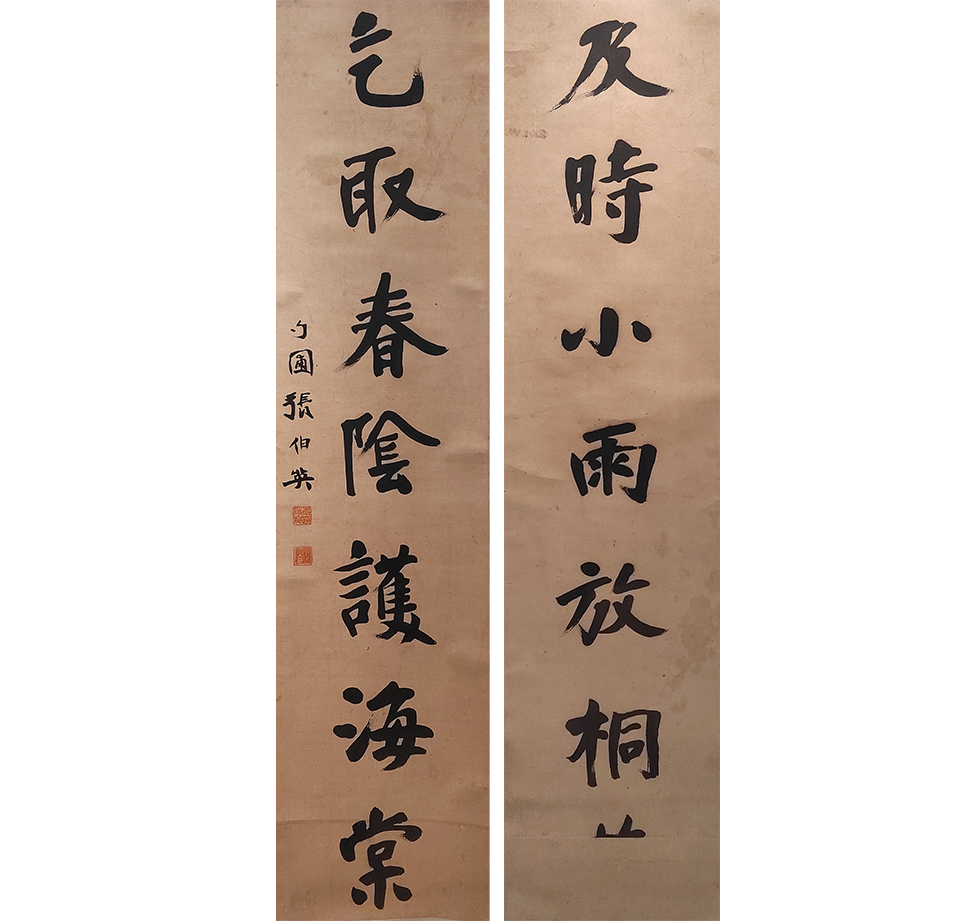 及時小雨放桐
乞取春陰護海棠
勺圃張伯英